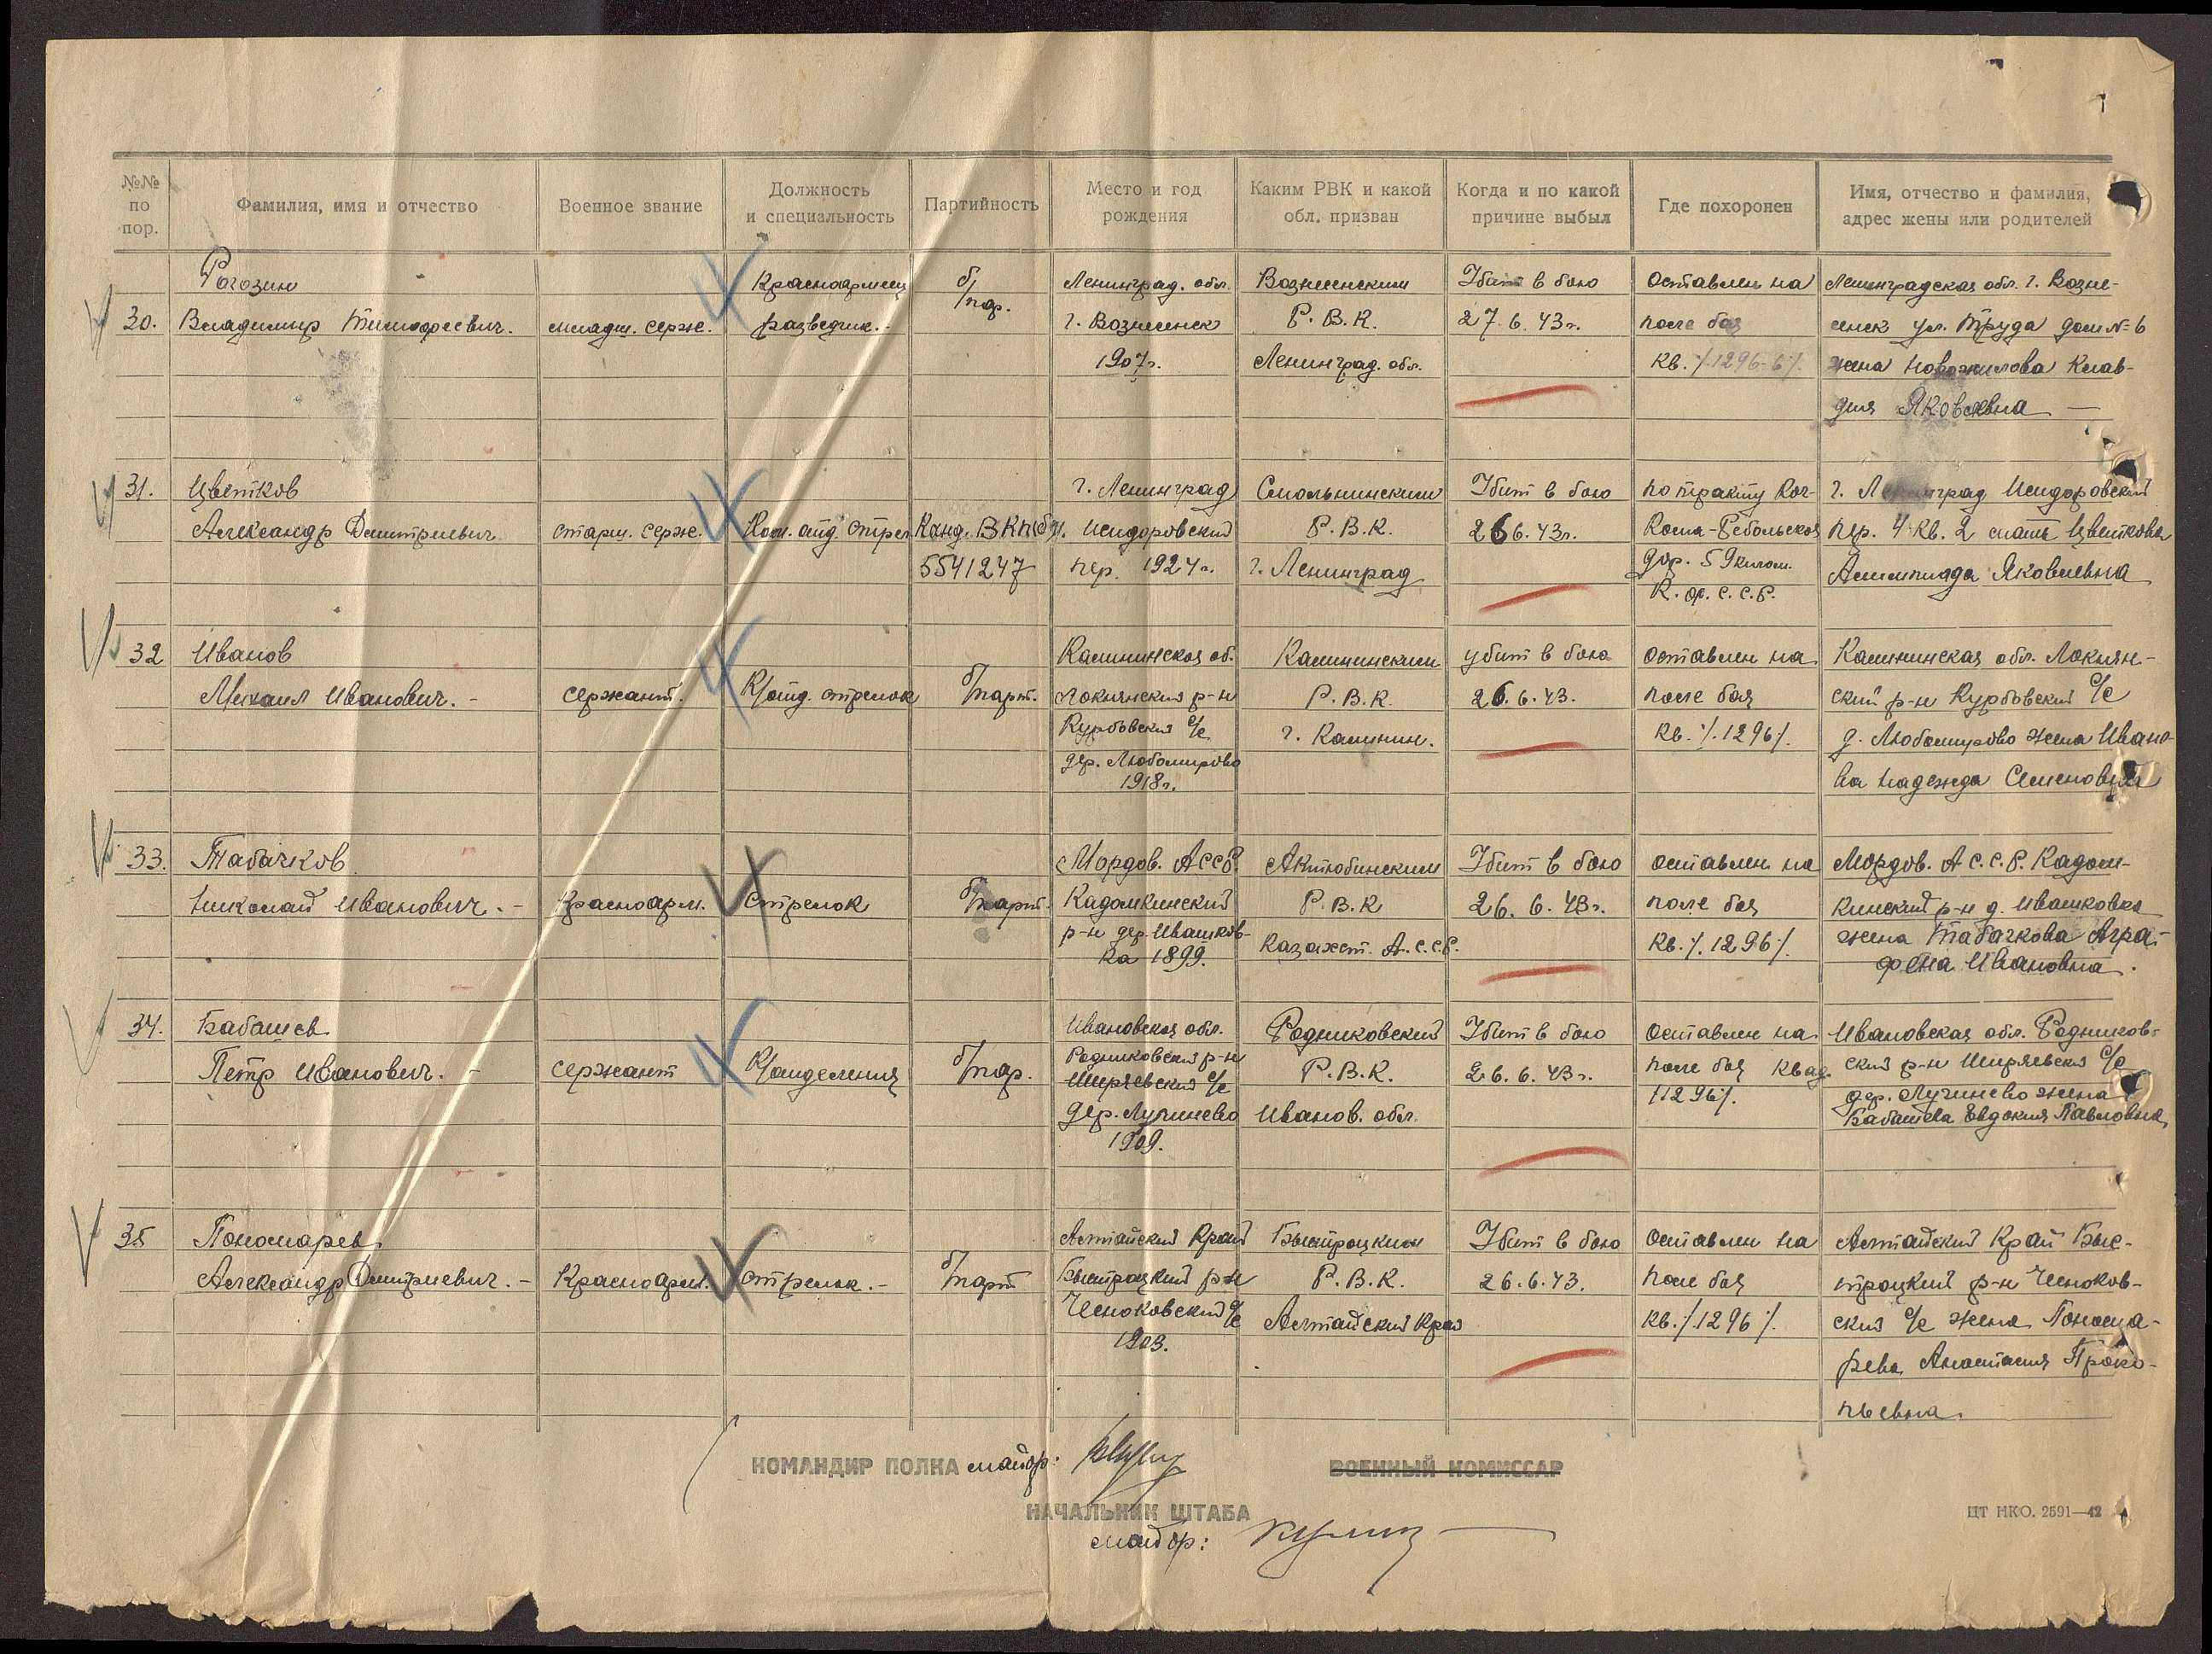 №№ по пор.
Фамилия, имя и отчество
Военное звание
Должность и специальность
Партийность
Место и год рождения
Каким РВК и какой обл. призван
Когда и по какой причине выбыл
Где похоронен
Имя, отчество и фамилия, адрес жены или родителей
30.
Рогозин
Владимир Тимофеевич.
младш. серж.
Красноармеец
разведчик.-
б/пар.
Ленинград. обл.
г. Вознесенск
1907г.
Вознесенским
Р.В.К.
Ленинград. обл.
Убит в бою
27.6.43г.
Оставлен на
поле боя
кв. ./.1296-б/.
Ленинградская обл. г. Возне-
сенск ул. Труда дом №6
жена Новожилова Клав-
дия Яковлевна —
31.
Цветков
Александр Дмитриевич
старш. серж.
Ком. отд. стрел
Канд. ВКП(б)
5541247
г. Ленинград
Исидоровский
пер. 1924г.
Смольнинским
Р.В.К.
г. Ленинград
Убит в бою
26.6.43г.
по тракту Коч-
кома-Ребольская
дор. 59 килом.
К.Ф.С.С.Р.
г. Ленинград Исидоровский
пер. 4 кв. 2 мать Цветкова
Алимпиада Яковлевна
32
Иванов
Михаил Иванович. -
сержант.
К/отд. стрелок
б/парт.
Калининская об.
Локнянский р-н
Курбовский с/с
дер. Любомирово
1918г.
Калининским
Р.В.К.
г. Калинин.
убит в бою
26.6.43.
оставлен на
поле боя
кв. ./.1296/.
Калининская обл. Локнян-
ский р-н Курбовский с/с
д. Любомирово жена Ивано-
ва Надежда Семеновна
33.
Табачков
Николай Иванович. -
Красноарм.
Стрелок
б/парт.
Мордов. АССР.
Кадомкинский
р-н дер. Ивашков-
ка 1899.
Актюбинским
Р.В.К
Казахст. А.С.С.Р.
Убит в бою
26.6.43г.
оставлен на
поле боя
кв. ./.1296/.
Мордов. А.С.С.Р. Кадом-
кинский р-н д. Ивашковка
жена Табачкова Агра-
фена Ивановна.
34.
Бабашев
Петр Иванович. -
сержант
К/отделения
б/пар.
Ивановская обл.
Родниковский р-н
Ширяевский с/с
дер. Лучинево
1909.
Родниковский
Р.В.К.
Иванов. обл.
Убит в бою
26.6.43г.
Оставлен на
поле боя квад.
/1296/.
Ивановская обл. Родников-
ский р-н Ширяевский с/с
дер. Лучинево жена
Бабашева Евдокия Павловна
35
Пономарев
Александр Дмитриевич. -
Красноарм.
стрелок. -
б/парт
Алтайский Край
Быстроцкий р-н
Чесноковский с/с
1903.
Быстроцким
Р.В.К.
Алтайский Край
Убит в бою
26.6.43.
Оставлен на
поле боя
кв. ./.1296 /.
Алтайский Край Быс-
троцкий р-н Чесноков-
ский с/с жена Понома-
рева Анастасия Проко-
пьевна.
КОМАНДИР ПОЛКА майор:
ВОЕННЫЙ КОМИССАР
НАЧАЛЬНИК ШТАБА
майор:
ЦТ НКО. 2591—42